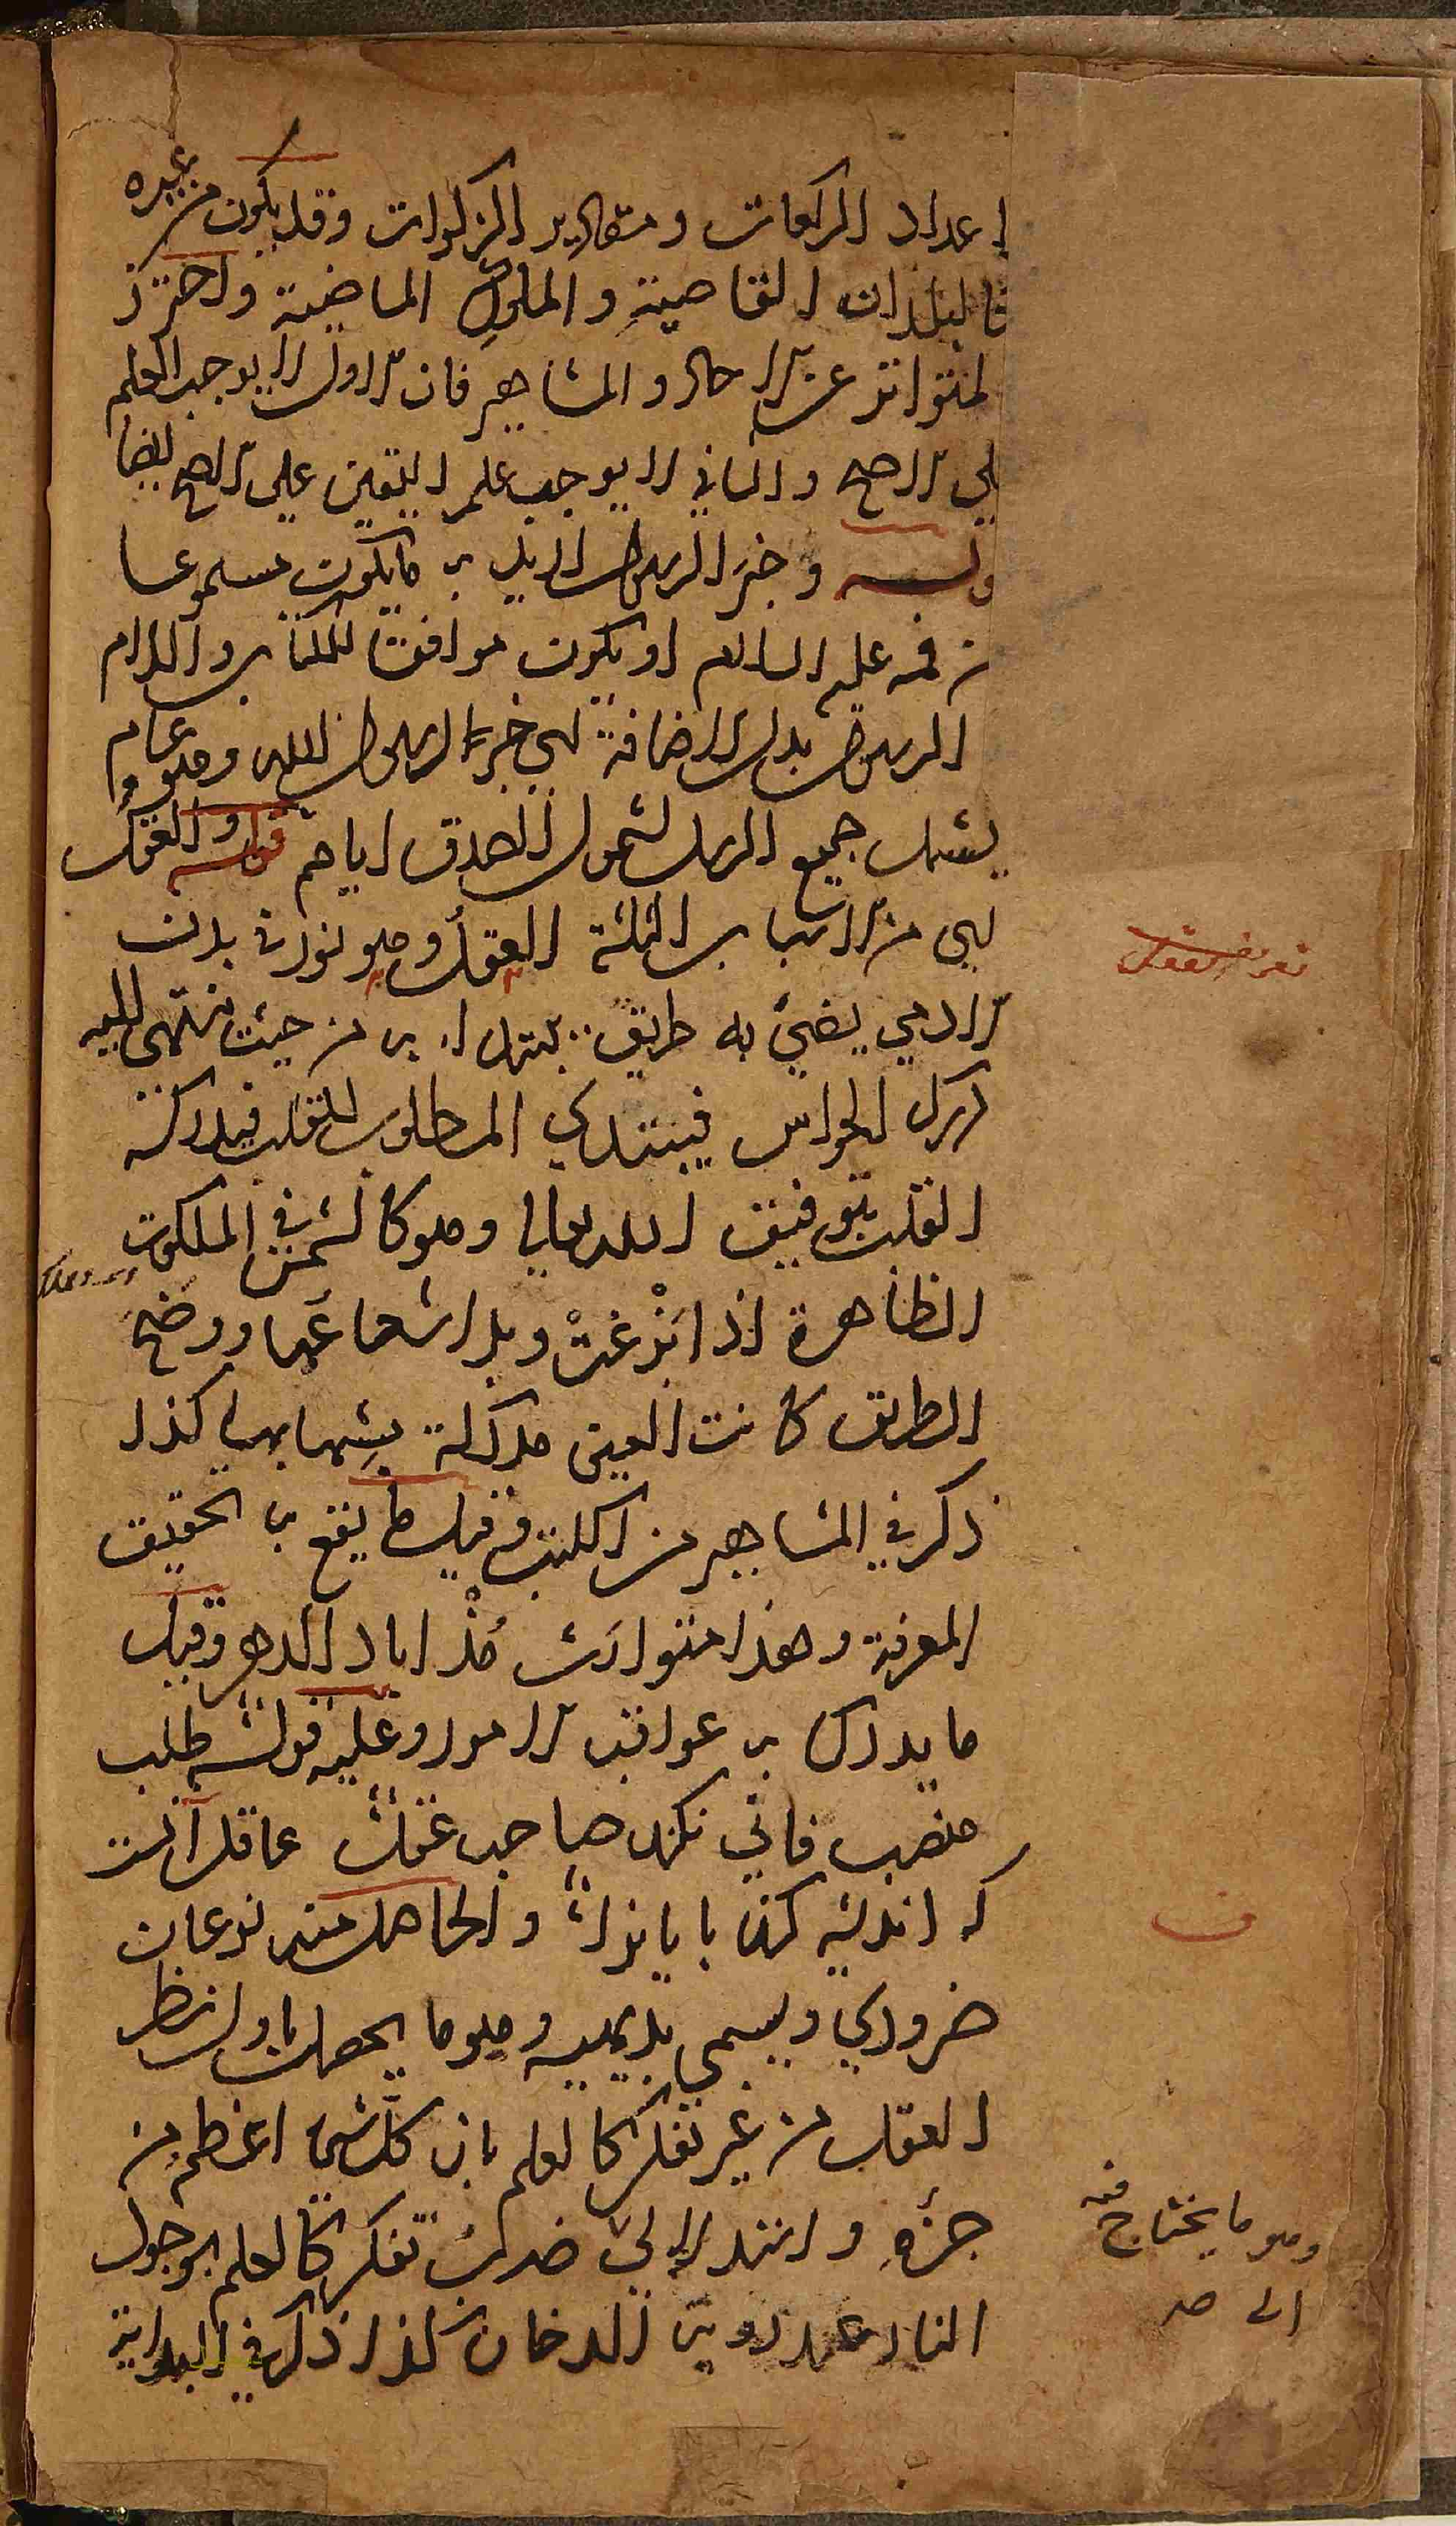 اعداد الركعات ومقادير الزكوات وقد يكون من غيره
فالبلدان القاصية والملوك الماضية واحترز
لمتواتر عن الاحاد والمشاهير فان الاول لا يوجب العلم
لى الاصح والثاني لا يوجب علم اليقين على الاصح ايضا
وله وخبر الرسول الايد به ما يكون مسموعا
من فمه عليه السلام او يكون موافقا للكتاب واللام
الرسول بدل الاضافة اى خبر الرسول الله وهو عام
يشمل جميع الرسل لشمول الصدق اياهم قوله والعقل
اى من الاسباب الثلثة العقل وهو نور في بدن
الادمي يضئ به طريق يبتدا به من حيث ينتهى اليه
درك الحواس فيبتدي المطلوب للقلب فيدركه
القلب بتوفيق الله تعالى وهو كالشمس في الملكوت
الظاهرة اذا بزغت وبدا شعاعها ووضح
الطريق كانت العين مدركة بشهابها كذا
ذكر في المشاهير من الكتب وقيل ما يقع به الحقيق
المعرفة وهذا متوارث مذ اباد الدهر وقيل
ما يدرك به عواقب الامور وعليه قوله طلب
منصب فاني نكند صاحب عقل عاقل آنست
كه انديشه كند پايانرا والحاصل منه نوعان
ضروري ويسمى بديهيه وهو ما يحصل باول نظر
العقل من غير تفكر كالعلم بان كل شئ اعظم من
جزئه واستدلالي ضرب تفكر كالعلم بوجود
النار عند روية الدخان كذا ذكر في البداية
تعريف العقل
ف
وهو ما يحتاج فيه
الى صـ